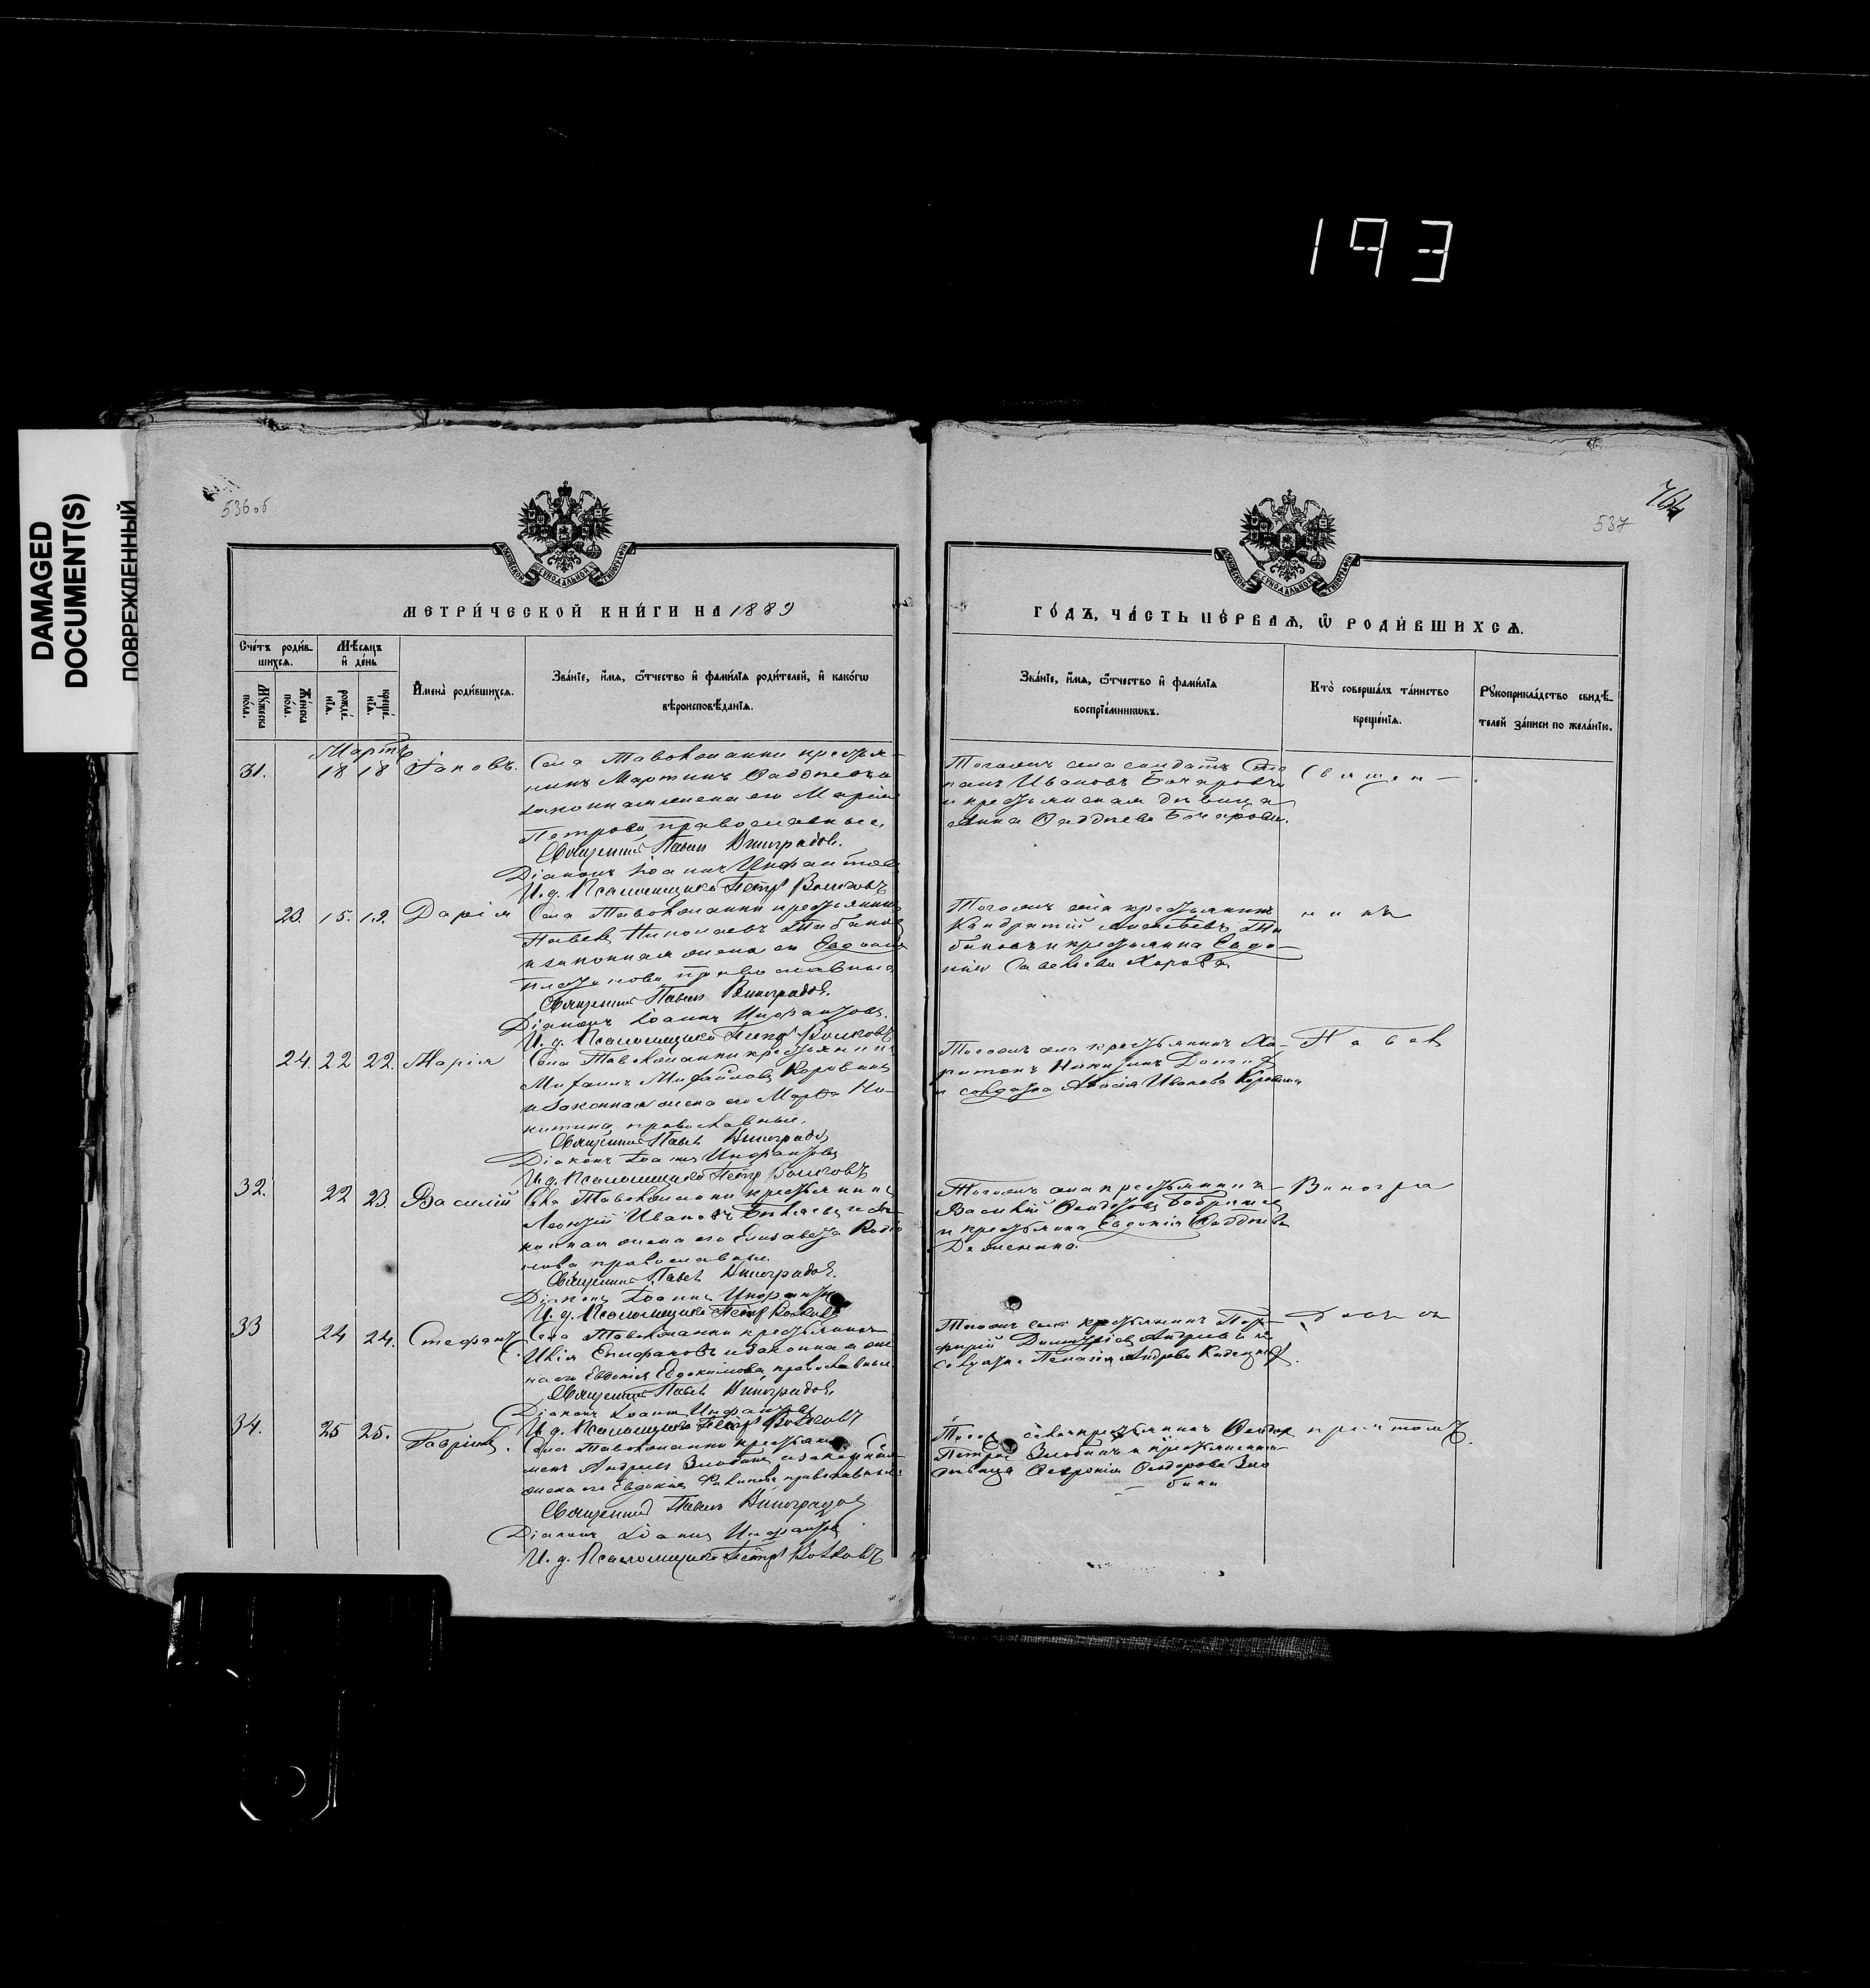 193
DAMAGED
DOCUMENT(S)
ПОВРЕЖДЕННЫЙ
536об
МОСКОВСКОЙ СѴНОДАЛЬНОЙ ТИПОГРАФІИ
МЕТРИ́ЧЕСКОЙ КНИ́ГИ НА 1889
Сче́тъ роди́в-
шихсѧ.
Мѣ́сѧцъ
и҆ де́нь
Мꙋ́жеска
по́ла.
Же́нска
по́ла.
рожде́-
нїѧ.
креще́-
нїѧ.
И҆мена̀ роди́вшихсѧ.
Зва́нїе, и҆́мѧ, ѻ҆́тчество и҆ фами́лїѧ роди́телей, и҆ како́гѡ
вѣроисповѣ́данїѧ.
Мартъ
31. 18 18 Іаковъ.
Села Таволжанки крестья-
нинъ Мартинъ Фаддеевъ и
законная жена его Марія
Петрова, православные,
Священникъ Павелъ Виноградов.
Діаконъ Іоаннъ Инфантовъ
И.д. Псаломщика Петръ Волковъ
23. 15. 19. Дарія
Села Таволжанки крестьянинъ
Павелъ Николаевъ Табаков
и законная жена его Евдокія
православные
Священникъ Павелъ Виноградов.
Діаконъ Іоаннъ Инфантовъ.
И.д. Псаломщика Петръ Волковъ
24. 22 22. Марія
Села Таволжанки крестьянинъ
Михаилъ Михайловъ Коровинъ
и законная жена его Марѳа Ни-
китина, православные,
Священникъ Павелъ Виноградов
Діаконъ Іоаннъ Инфантовъ
И.д. Псаломщика Петръ Волковъ
32. 22 23. Василій
Села Таволжанки крестьянинъ
Леонтій Ивановъ и за-
конная жена его Елисавета Родіо
нова православные.
Священникъ Павелъ Виноградов.
Діаконъ Іоаннъ Инфантовъ
И.д. Псаломщика Петръ Волковъ
33 24 24. Стефанъ
Села Таволжанки крестьянинъ
Илія Епифановъ и законная же
на его Евдокія Евдокимова, православные.
Священникъ Павелъ Виноградов.
Діаконъ Іоаннъ Инфантовъ
И.д. Псаломщика Петръ Волковъ
34. 25 25. Гавріилъ.
Села Таволжанки крестьянинъ
Андреевъ Злобинъ и законная
жена его Евдокія православные.
Священникъ Павелъ Виноградов
Діаконъ Іоаннъ Инфантовъ
И.д. Псаломщика Петръ Волковъ
537
764
МОСКОВСКОЙ СѴНОДАЛЬНОЙ ТИПОГРАФІИ
ГО́ДЪ, ЧА́СТЬ ПЕ́РВАѦ, Ѡ҆ РОДИ́ВШИХСѦ.
Зва́нїе, и҆́мѧ, ѻ҆́тчество и҆ фами́лїѧ
воспрїе́мникѡвъ.
Кто̀ соверша́лъ та́инство
креще́нїѧ.
Рꙋкоприкла́дство свидѣ́-
телей за́писи по жела́нїю.
Тогоже села солдатъ Сте
панъ Ивановъ Бочаровъ
и крестьянская дѣвица
Анна Фаддеева Бочарова.
Священ-
Тогоже села крестьянинъ
Кондратій Алексѣевъ Та
баковъ и крестьянка Евдо-
кія Савельева
никъ
Тогоже села крестьянинъ Ха-
ритонъ Никитинъ
и солдатка Ивановна Коровина
Павел
Тогоже села крестьянинъ
Василій Ѳеодоровъ
и крестьянка Евдокія Фаддеева
Виногра
Тогоже села крестьянинъ Пор-
фирій Димитріевъ Андреевъ и
солдатка Пелагія Андреева
довъ съ
Тогоже села крестьянинъ Ѳеодоръ
Петровъ Злобинъ и крестьянская
дѣвица Ѳеодорова Зло
бина
причтомъ.